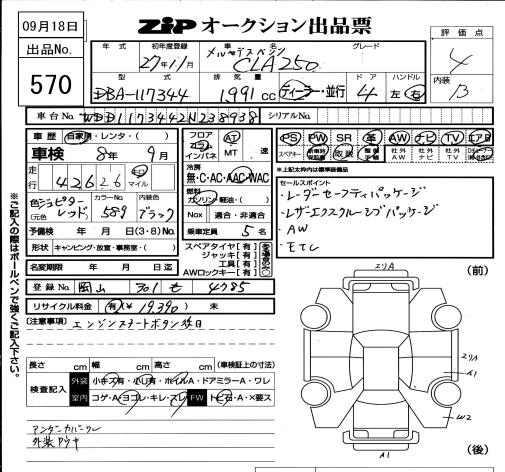 09月18日
ZiP オークション出品票
出品No.
570
評価点
4
内装
B
年式 初年度登録 車名 グレード
27年1月 メルセデスベンツ CLA250
型式 排気量 ドア ハンドル
DBA-117344 1,991 cc ディーラー・並行 4 左・右
車台No. WDD1173442N238938 シリアルNo.
車歴 自家用・レンタ・( )
車検 8年 9月
走行 42626 km マイル
色 ジュピターレッド (元色) カラーNo. 589 内装色 ブラック
予備検 年 月 日(3・8)No.
形状 キャンピング・放置・事務室・( )
名変期限 年 月 日迄
フロア コラム インパネ AT MT 速
冷房
無・C・AC・AAC・WAC
燃料
ガソリン 軽油・( )
Nox 適合・非適合
乗車定員 5 名
スペアタイヤ[有]
ジャッキ[有]
工具[有]
AWロックキー[有]
PS PW SR 革 AW ナビ TV エアB
スペアキー 新車時保証書 取説 整備手帳 社外AW 社外ナビ 社外TV
*上記太枠内は標準装備品
セールスポイント
・レーダーセーフティパッケージ
・レザーエクスクルーシブパッケージ
・AW
・ETC
登録No. 岡山 301 せ 4985
リサイクル料金 有(¥ 19,390) 未
[注意事項] エンジンスタートボタン
長さ cm 幅 cm 高さ cm (車検証上の寸法)
検査記入 外装 小キズ有・小凹有・ホイルA・ドアミラーA・ワレ
室内 コゲA・ヨゴレ・キレ・スレ FW トビ石A・×要ス
アンダーカバーワレ
外装
※ご記入の際はボールペンで強くご記入下さい。
(前)
2リA
2リA
A1
W2
A1
(後)